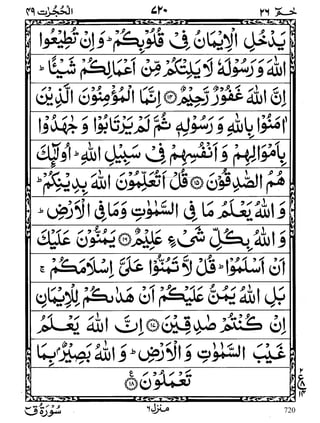 حٰمٓ ٢٦ ٧٢٠ الحُجُرٰت ٤٩
يَدْخُلِ الْاِيْمَانُ فِيْ قُلُوْبِكُمْ ؕ وَاِنْ تُطِيْعُوا
اللّٰهَ وَرَسُوْلَهٗ لَا يَلِتْكُمْ مِّنْ اَعْمَالِكُمْ شَيْـًٔا ؕ
اِنَّ اللّٰهَ غَفُوْرٌ رَّحِيْمٌ ﴿١٤﴾ اِنَّمَا الْمُؤْمِنُوْنَ الَّذِيْنَ
اٰمَنُوْا بِاللّٰهِ وَرَسُوْلِهٖ ثُمَّ لَمْ يَرْتَابُوْا وَجٰهَدُوْا
بِاَمْوَالِهِمْ وَاَنْفُسِهِمْ فِيْ سَبِيْلِ اللّٰهِ ؕ اُولٰٓئِكَ
هُمُ الصّٰدِقُوْنَ ﴿١٥﴾ قُلْ اَتُعَلِّمُوْنَ اللّٰهَ بِدِيْنِكُمْ ؕ
وَاللّٰهُ يَعْلَمُ مَا فِي السَّمٰوٰتِ وَمَا فِي الْاَرْضِ ؕ
وَاللّٰهُ بِكُلِّ شَيْءٍ عَلِيْمٌ ﴿١٦﴾ يَمُنُّوْنَ عَلَيْكَ
اَنْ اَسْلَمُوْا ؕ قُلْ لَّا تَمُنُّوْا عَلَيَّ اِسْلَامَكُمْ ۚ
بَلِ اللّٰهُ يَمُنُّ عَلَيْكُمْ اَنْ هَدٰىكُمْ لِلْاِيْمَانِ
اِنْ كُنْتُمْ صٰدِقِيْنَ ﴿١٧﴾ اِنَّ اللّٰهَ يَعْلَمُ
غَيْبَ السَّمٰوٰتِ وَالْاَرْضِ ؕ وَاللّٰهُ بَصِيْرٌۢ بِمَا
تَعْمَلُوْنَ ﴿١٨﴾
سُوْرَةُ قٓ منزل ٦ 720